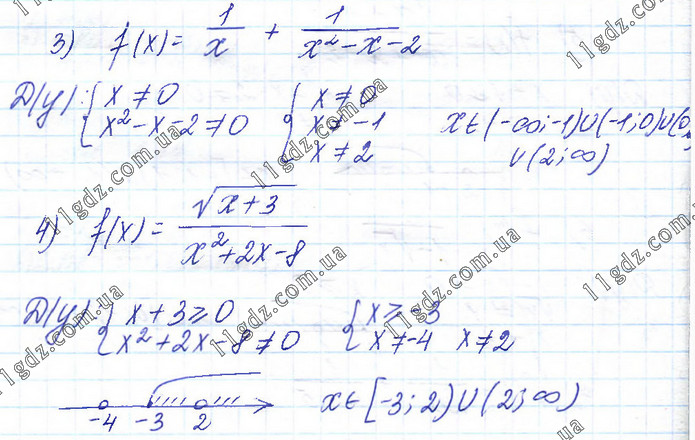 3) f(x) = 1/x + 1/(x² - x - 2)
Д(y): { x ≠ 0
x² - x - 2 ≠ 0
{ x ≠ 0
x ≠ -1
x ≠ 2
x ∈ (-∞; -1) ∪ (-1; 0) ∪ (0;
∪ (2; ∞)
4) f(x) = √(x + 3)/(x² + 2x - 8)
Д(y): { x + 3 ≥ 0
x² + 2x - 8 ≠ 0
{ x ≥ -3
x ≠ -4 x ≠ 2
-4 -3 2
x ∈ [-3; 2) ∪ (2; ∞)
11gdz.com.ua
11gdz.com.ua
11gdz.com.ua
11gdz.com.ua
11gdz.com.ua
11gdz.com.ua
11gdz.com.ua
11gdz.com.ua